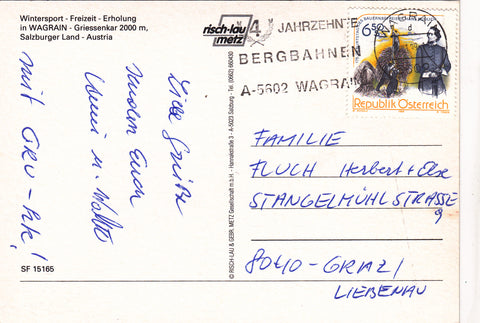 Wintersport - Freizeit - Erholung
in WAGRAIN - Griessenkar 2000 m,
Salzburger Land - Austria
Liebe Grüße
senden Euch
u. Walter
mit GRU-PK!
SF 15165
risch-lau
metz
© RISCH-LAU & GEBR. METZ Gesellschaft m.b.H. - Hannakstraße 3 - A-5023 Salzburg - Tel. (0662) 660430
4 JAHRZEHNTE
BERGBAHNEN
A-5602 WAGRAIN
6,50
Republik Österreich
FAMILIE
FLUCH Herbert + Else
STANGELMÜHLSTRASSE
9
8010-GRAZ/
LIEBENAU